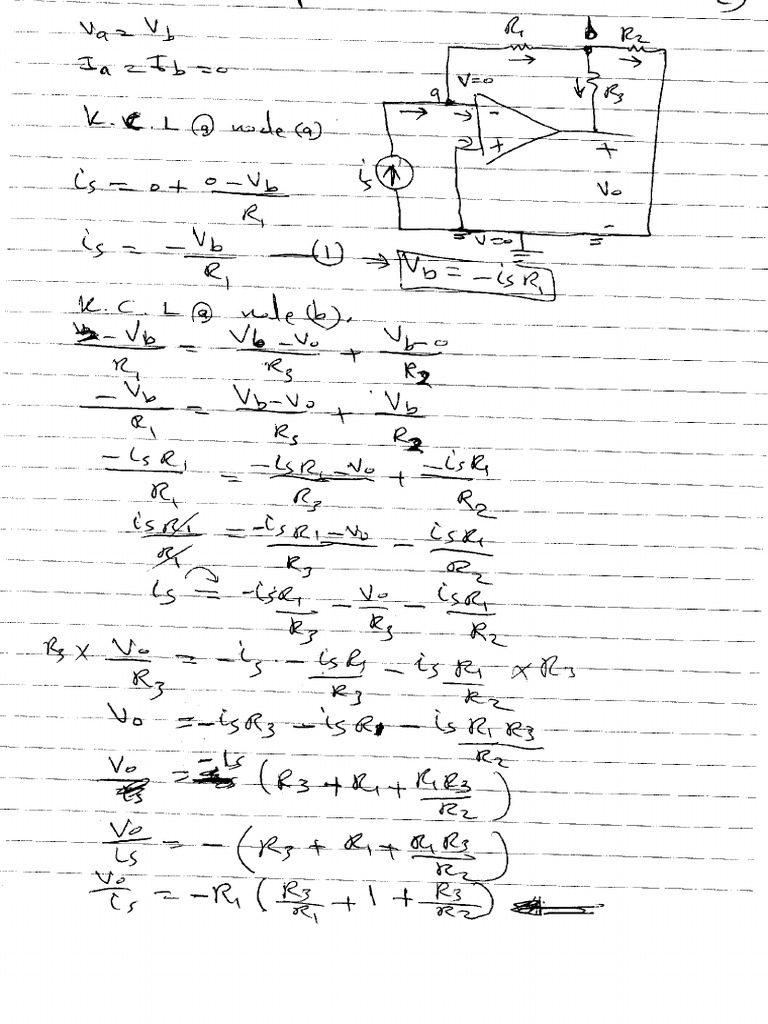 Va = Vb
Ia = Ib = 0
K.C.L @ node (a)
is = 0 + (0 - Vb)/R1
is = -Vb/R1 —(1) → Vb = -is R1
R1
b
R2
R3
a
V=0
-
+
is
+
Vo
-
V=0
K.C.L @ node (b).
-Vb/R1 = (Vb - Vo)/R3 + (Vb - 0)/R2
-Vb/R1 = (Vb - Vo)/R3 + Vb/R2
-is R1/R1 = (-is R1 - Vo)/R3 + -is R1/R2
is R1/R1 = (-is R1 - Vo)/R3 - is R1/R2
is = -is R1/R3 - Vo/R3 - is R1/R2
R3 × Vo/R3 = -is - is R1/R3 - is R1/R2 × R3
Vo = -is R3 - is R1 - is R1 R3/R2
Vo = -is (R3 + R1 + R1 R3/R2)
Vo/is = -(R3 + R1 + R1 R3/R2)
Vo/is = -R1 (R3/R1 + 1 + R3/R2)